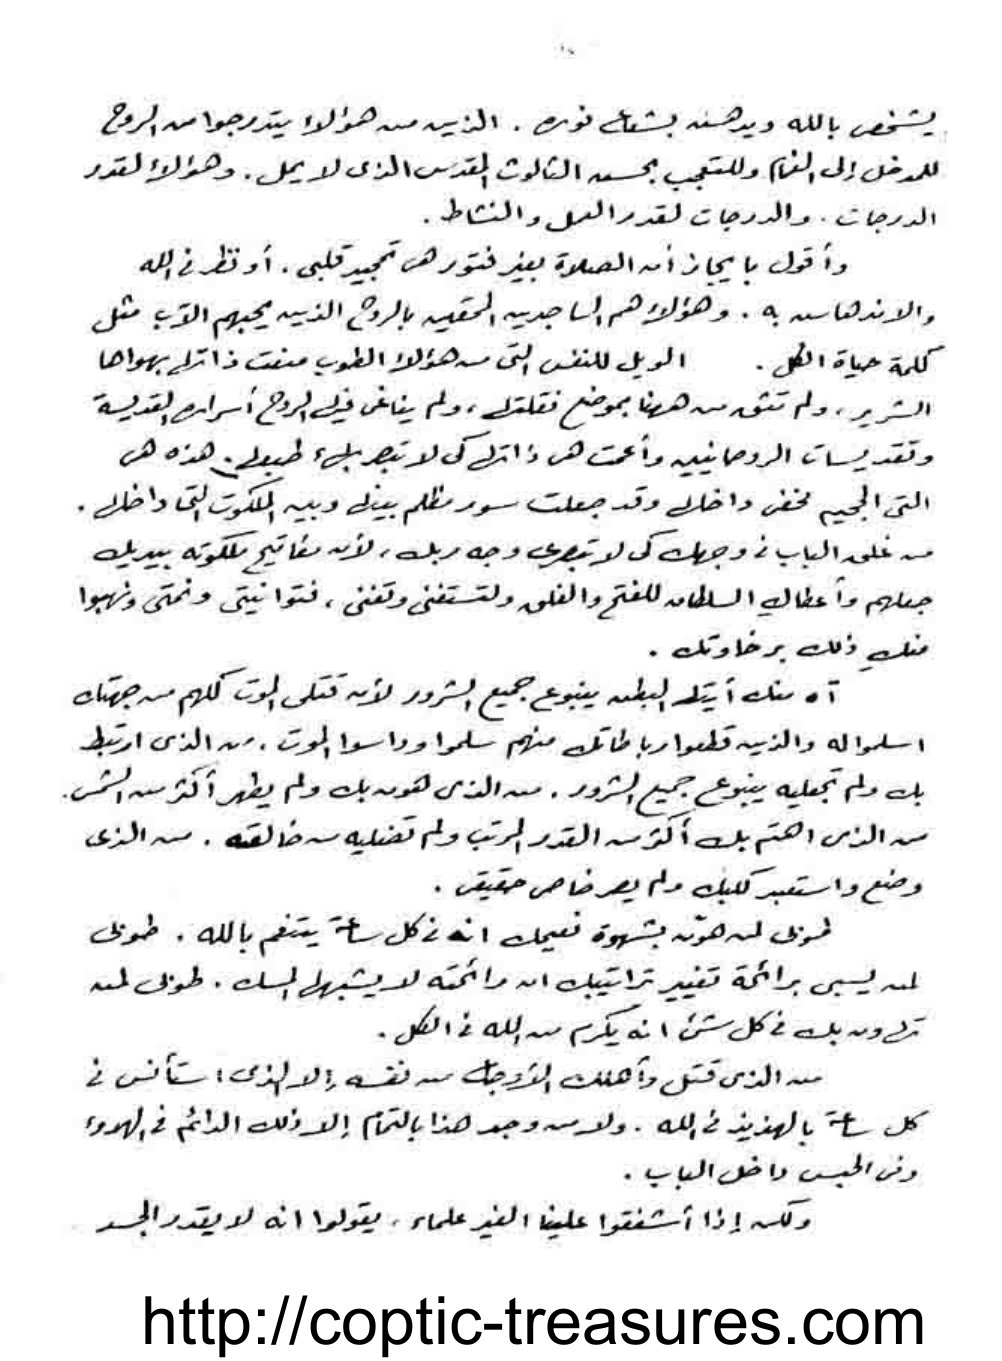 يشخص بالله ويدهش بشعاع نوره . الذين من هؤلاء يتدرجوا من الروح
للدخول إلى الغمام وللتعجب بحسن الثالوث المقدس الذى لا يمل . وهؤلاء لقدر
الدرجات . والدرجات لقدر العمل والنشاط .
وأقول بإيجاز أن الصلاة بغير فتور هى تمجيد قلبى . أو نظر فى الله
والاندهاش به . وهؤلاء هم الساجدين المحقين بالروح الذين يحبهم الآب مثل
كلمة حياة الكل . الويل للنفس التى من هؤلاء الطوب منعت ذاتها بهواها
الشرير ، ولم تثق من ههنا بموضع نقلتها ، ولم يناغى فيها الروح أسراره القديسة
وتقديسات الروحانيين وأعمت هى ذاتها كى لا تبصر بهاء طبعها . هذه هى
التى الجحيم مخفى داخلها وقد جعلت سور مظلم بينها وبين الملكوت التى داخلها .
من غلق الباب فى وجهك كى لا تبصرى وجه ربك ، لأن مفاتيح ملكوته بيديك
جعلهم وأعطاك السلطان للفتح والغلق ولتستغنى وتغنى ، فتوانيتى ونمتى ونهبوا
منك ذلك برخاوتك .
آه منك أيتها البطن ينبوع جميع الشرور لأن قتلى الموت كلهم من جهتك
اسلموا له والذين قطعوا رباطاتك منهم سلموا وداسوا الموت . من الذى ارتبط
بك ولم تجعليه ينبوع جميع الشرور . من الذى هون بك ولم يطهر أكثر من الشمس .
من الذى اهتم بك أكثر من القدر المرتب ولم تضليه من خالقه . من الذى
وضع واستعبد كليك ولم يصر خاص حقيقى .
طوبى لمن هوّن بشهوة نعيمك انه فى كل ساعة يتنعم بالله . طوبى
لمن يسبى برائحة تغيير تراتيبك ان رائحته لا يشبهها المسك . طوبى لمن
تهاون بك فى كل شئ انه يكرم من الله فى الكل .
من الذى قتل وأهلك الأوجاع من نفسه إلا الذى استأنس فى
كل ساعة بالهذيذ فى الله . ولا من وجد هذا بالتمام إلا ذلك الدائم فى الهدوء
وفى الحبس داخل الباب .
ولكن إذا أشفقوا علينا الغير علماء ، يقولوا انه لا يقدر الجسد
http://coptic-treasures.com